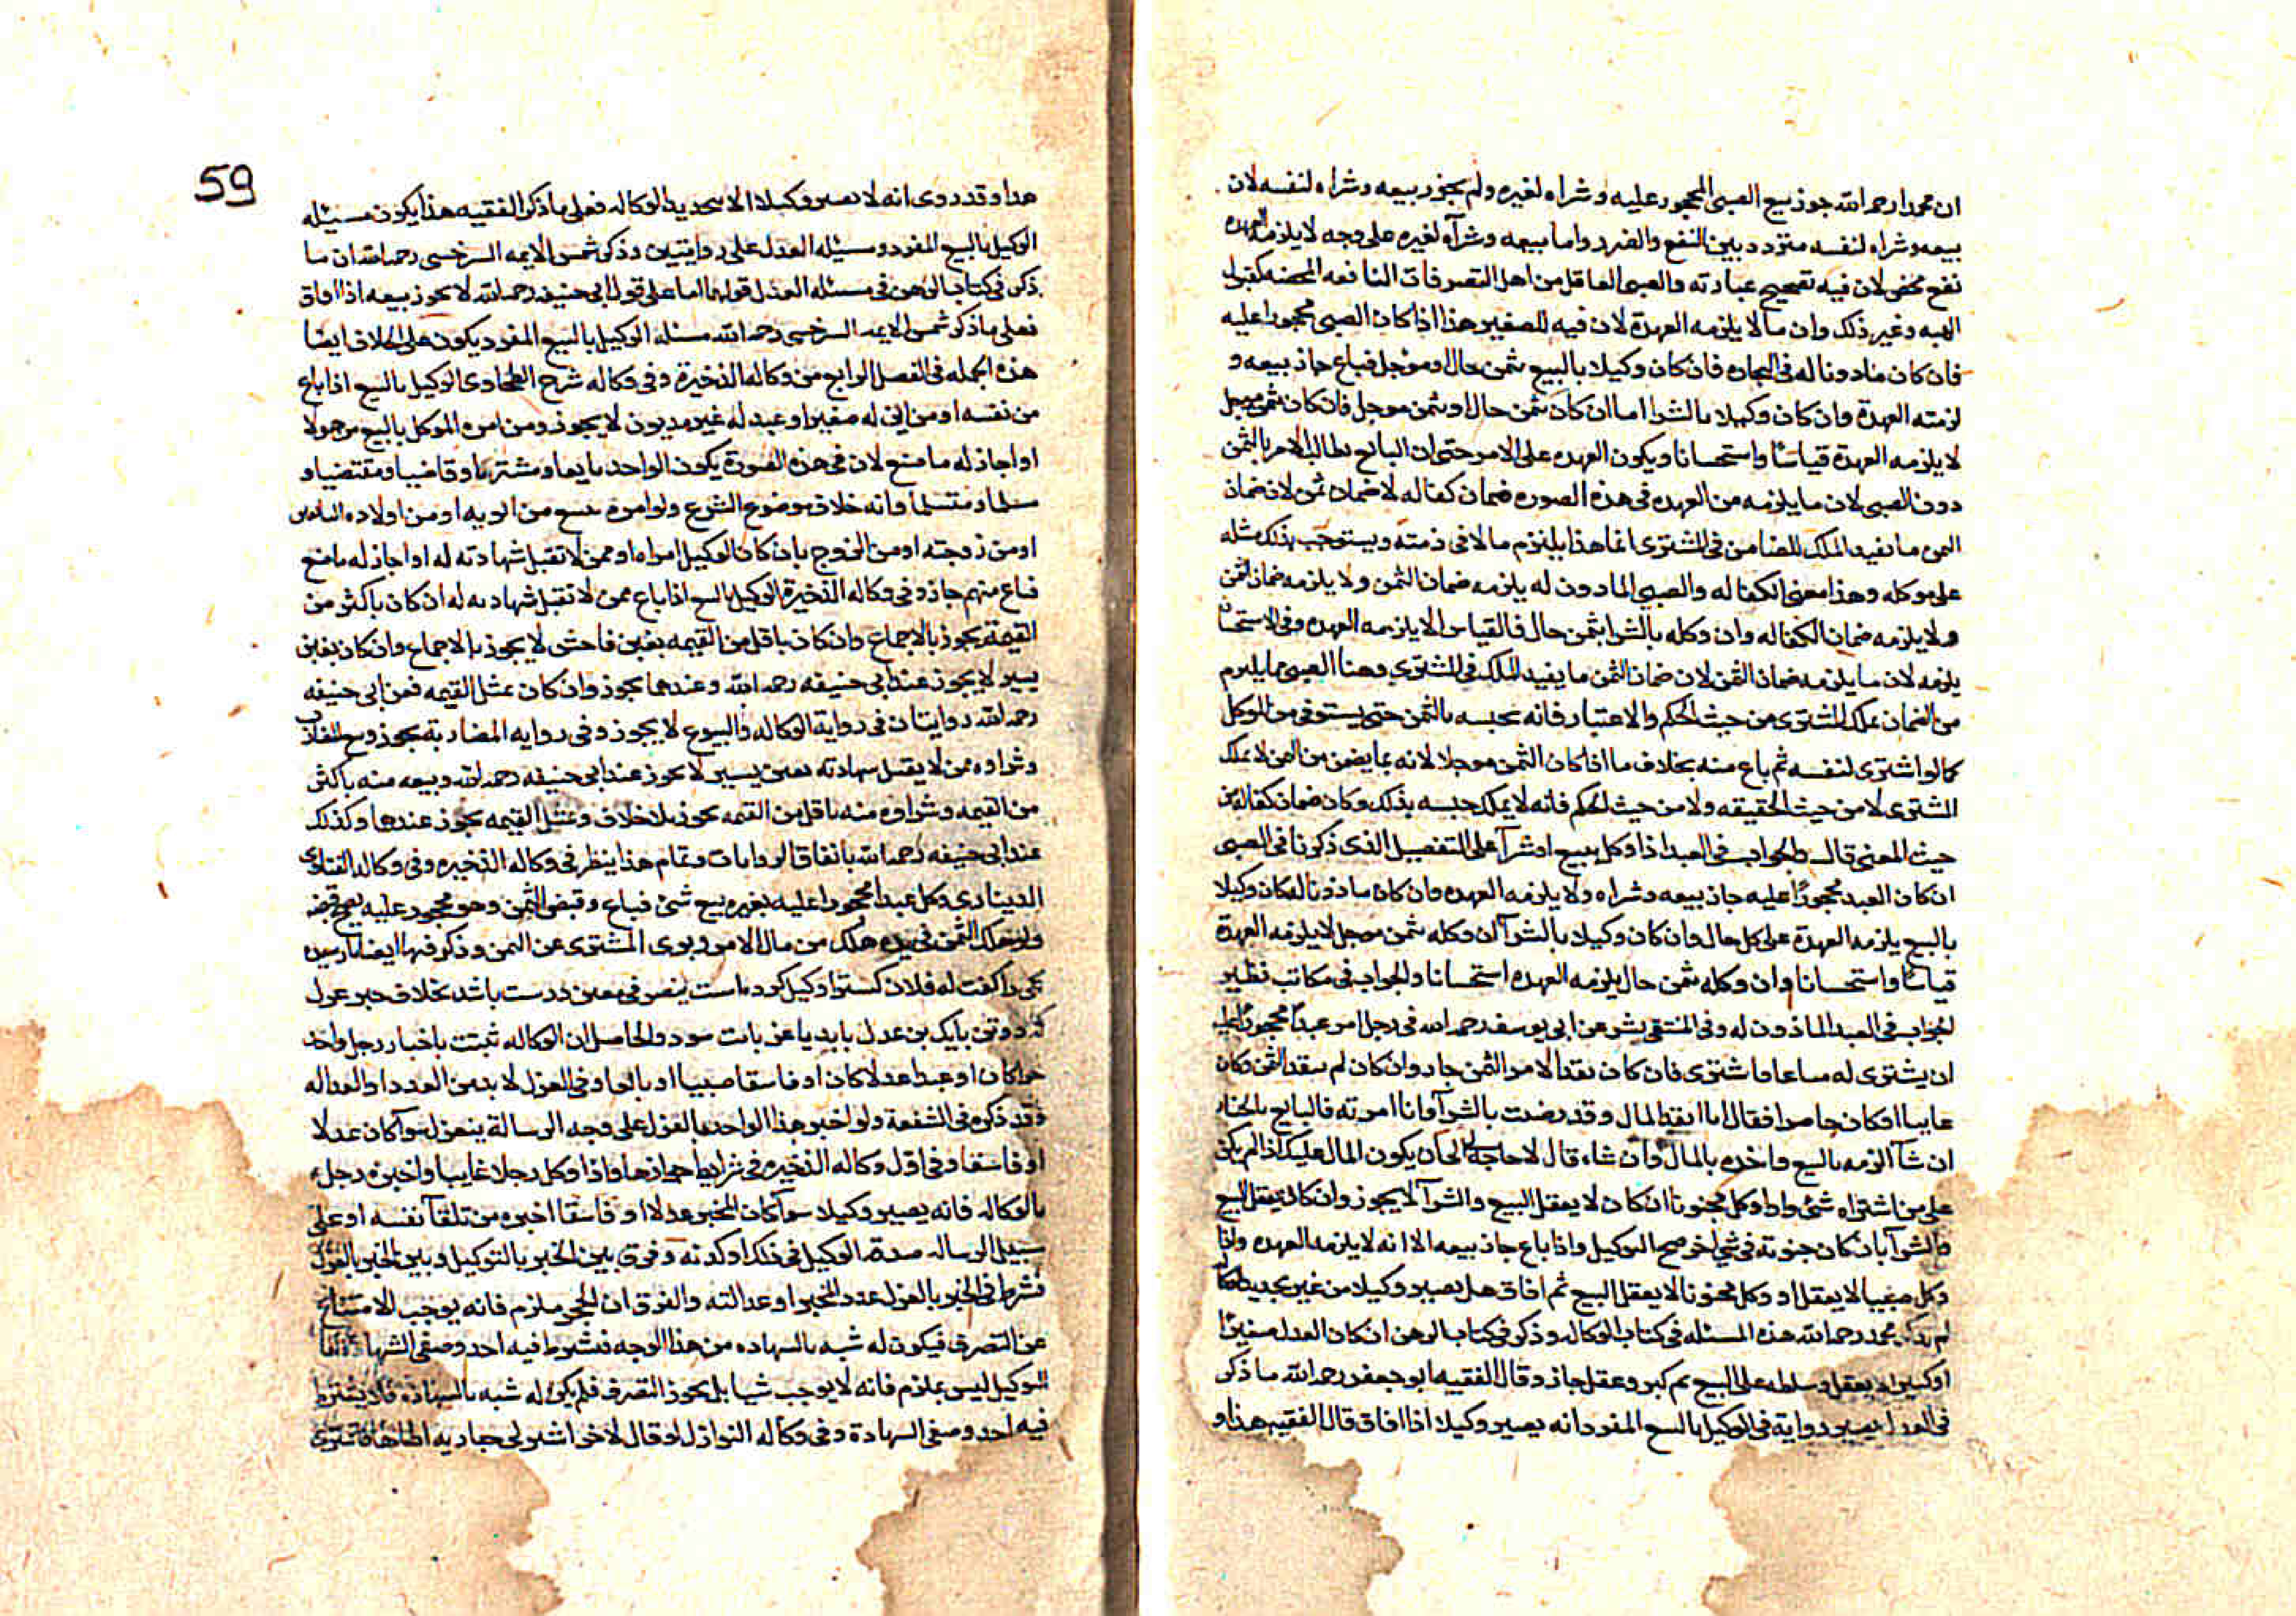 ان محمدا رحمه الله جوز بيع الصبى المحجور عليه وشراه لغيره ولم يجوز بيعه وشراه لنفسه لان
بيعه وشراه لنفسه متردد بين النفع والضرر واما بيعه وشرآه لغيره على وجه لا يلزمه العهده
نفع محض لان فيه تصحيح عبارته والصبى العاقل من اهل التصرفات النافعه المحضه كقبول
الهبه وغير ذلك وان ما لا يلزمه العهدة لان فيه للصغير هذا اذا كان الصبى محجورا عليه
فان كان ماذونا له فى التجاره فان كان وكيلا بالبيع بثمن حال او موجل فباع جاز بيعه و
لزمته العهدة وان كان وكيلا بالشرا اما ان كان بثمن حال او بثمن موجل فان كان بثمن موجل
لا يلزمه العهدة قياسًا واستحسانا ويكون العهده على الامر حتى ان البايع يطالب الامر بالثمن
دون الصبى لان ما يلزمه من العهده فى هذه الصوره ضمان كفاله لا ضمان ثمن لان ضمان
الثمن ما يفيد الملك للضامن فى المشترى انما هذا يلتزم مالا فى ذمته ويستوجب بذلك مثله
على موكله وهذا معنى الكفاله والصبى الماذون له يلزمه ضمان الثمن ولا يلزمه ضمان الثمن
ولا يلزمه ضمان الكفاله وان وكله بالشرا بثمن حال فالقياس ان لا يلزمه العهده وفى الاستحسان
يلزمه لان ما يلزمه ضمان الثمن لان ضمان الثمن ما يفيد الملك فى المشترى وهنا الصبى بما يلزم
من الضمان يملك المشترى من حيث الحكم والاعتبار فانه يحبسه بالثمن حتى يستوفى من الموكل
كما لو اشترى لنفسه ثم باع منه بخلاف ما اذا كان الثمن موجلا لانه بما يضمن من الثمن لا يملك
المشترى لا من حيث الحقيقه ولا من حيث الحكم فانه لا يملك حبسه بذلك وكان ضمان كفاله من
حيث المعنى قال والجواب فى العبد اذا وكل ببيع او شرآ على التفصيل الذى ذكرنا فى الصبى
ان كان العبد محجورًا عليه جاز بيعه وشراه ولا يلزمه العهده وان كان ماذونا له كان وكيلا
بالبيع يلزمه العهدة على كل حال وان كان وكيلا بالشرآ ان وكله بثمن موجل لا يلزمه العهدة
قياسًا واستحسانا وان وكله بثمن حال يلزمه العهده استحسانا والجواب فى مكاتب نظير
الجواب فى العبد الماذون له وفى المنتقى بشر عن ابى يوسف رحمه الله فى رجل امر عبدًا محجورًا عليه
ان يشترى له متاعا فاشترى فان كان نقد الامر الثمن جاز وان كان لم ينقد الثمن وكان
غايبا او كان حاضرا فقال انا انقد المال وقد رضيت بالشرآ وانا امرته فالبايع بالخيار
ان شآ الزمه بالبيع واخذه بالمال وان شاء قال لا حاجة لى ان يكون المال عليك اذا لم يكن
على من اشتراه شئ واذا وكل مجنونا ان كان لا يعقل البيع والشرآ لا يجوز وان كان يعقل البيع
والشرآ بان كان جنونه فى شئ اخر صح التوكيل واذا باع جاز بيعه الا انه لا يلزمه العهده واذا
وكل صبيا لا يعقل او وكل مجنونا لا يعقل البيع ثم افاق هل يصير وكيلا من غير تجديد
لم يذكر محمد رحمه الله هذه المسئله فى كتاب الوكاله وذكر فى كتاب الرهن ان كان العدل صغيرًا
او كبيرا لا يعقل وسلطه على البيع ثم كبر وعقل جاز وقال الفقيه ابو جعفر رحمه الله ما ذكر
فى العدل يصير رواية فى الوكيل بالبيع المفرد انه يصير وكيلا اذا افاق قال الفقيه هذا و
59
هذا وقد روى انه لا يصير وكيلا الا بتجديد الوكاله فعلى ما ذكر الفقيه هذا يكون مسئله
الوكيل بالبيع المفرد ومسئله العدل على روايتين وذكر شمس الايمه السرخسى رحمه الله ان ما
ذكر فى كتاب الرهن فى مسئله العدل قولهما اما على قول ابى حنيفه رحمه الله لا يجوز بيعه اذا افاق
فعلى ما ذكر شمس الايمه السرخسى رحمه الله مسئله الوكيل بالبيع المفرد يكون على الخلاف ايضا
هذه الجمله فى الفصل الرابع من وكاله الذخيرة وفى وكاله شرح الطحاوى الوكيل بالبيع اذا باع
من نفسه او من ابن له صغير او عبد له غير مديون لا يجوز ومن امره الموكل بالبيع من هولا
او اجاز له ما صنع لان فى هذه الصورة يكون الواحد بايعا ومشتريا وقاضيا ومقتضيا و
مسلما ومتسلما وانه خلاف موضوع الشرع ولو امره ببيع من ابويه او من اولاده البالغين
او من زوجته او من الزوج بان كان الوكيل امراه او ممن لا تقبل شهادته له او اجاز له ما صنع
فباع منهم جاز وفى وكاله الذخيرة الوكيل بالبيع اذا باع ممن لا تقبل شهادته له ان كان باكثر من
القيمة يجوز بالاجماع وان كان باقل من القيمه بغبن فاحش لا يجوز بالاجماع وان كان بغبن
يسير لا يجوز عند ابى حنيفه رحمه الله وعندهما يجوز وان كان بمثل القيمه فعن ابى حنيفه
رحمه الله روايتان فى رواية الوكاله والبيوع لا يجوز وفى روايه المضاربة يجوز وبيع المضارب
وشراوه ممن لا يقبل شهادته بغبن يسير لا يجوز عند ابى حنيفه رحمه الله وبيعه منه باكثر
من القيمه وشراوه منه باقل من القيمه يجوز بلا خلاف وبمثل القيمه يجوز عندهما وكذلك
عند ابى حنيفه رحمه الله باتفاق الروايات وتمام هذا ينظر فى وكاله الذخيره وفى وكاله الفتاوى
الدينارى وكل عبدا محجورا عليه بغيره ببيع شئ فباع وقبض الثمن وهو محجور عليه يصح قبضه
ولو هلك الثمن فى يده هلك من مال الامر وبرى المشترى عن الثمن وذكر فيها ايضا بارسيه
يكى را كفت له فلان كس ترا وكيل كرده است بتصرف معين درست باشد بخلاف خبر عزل
كه دو تن بايك تن عدل بايد يا عزل ثابت شود والحاصل ان الوكاله تثبت باخبار رجل واحد
حرا كان او عبدا عدلا كان او فاسقا صبيا او بالغا وفى العزل لا بد من العدد او العداله
وقد ذكره فى الشفعة ولو اخبره هذا الواحد بالعزل على وجه الرسالة ينعزل سوآ كان عدلا
او فاسقا وفى اول وكاله الذخيره فى شرايط جوازها واذا وكل رجلا غايبا واخبره رجل
بالوكاله فانه يصير وكيلا سوآ كان المخبر عدلا او فاسقا اخبره من تلقآ نفسه او على
سبيل الرساله صدقه الوكيل فى ذلك او كذبه وفرق بين الخبر بالتوكيل وبين الخبر بالعزل
فشرط فى الخبر بالعزل عدد المخبر او عدالته والفرق ان الحجر ملزم فانه يوجب الامتناع
عن التصرف فيكون له شبه بالشهاده من هذا الوجه فشرط فيه احد وصفى الشهادة اما
التوكيل ليس بملزم فانه لا يوجب شيا بل يجوز التصرف فلم يكن له شبه بالشهاده فلا يشترط
فيه احد وصفى الشهادة وفى وكاله النوازل لو قال لاخر اشتر لى جاريه اطاها فاشترى